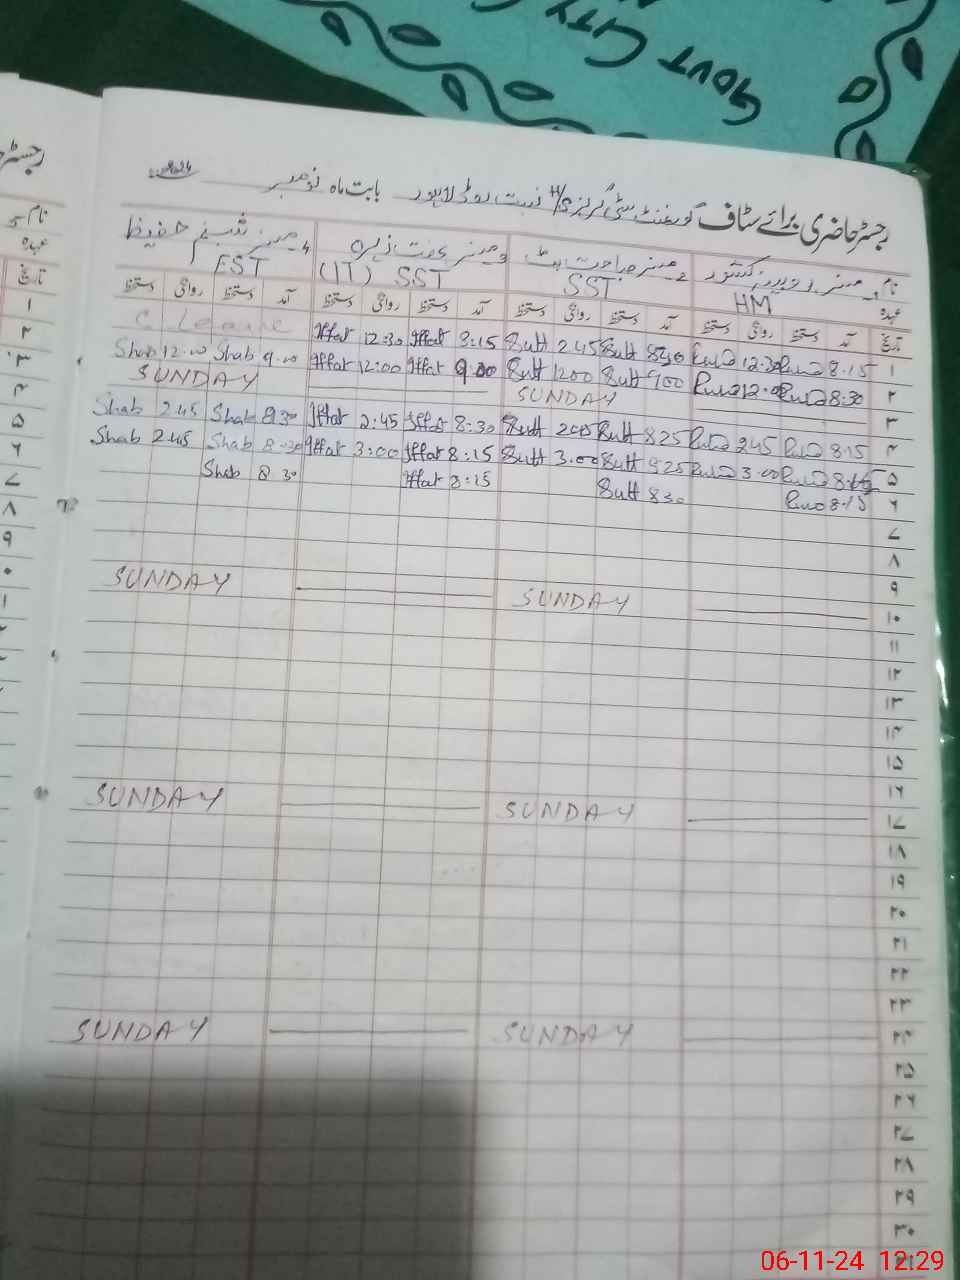 GOVT CITY
رجسٹر حاضری برائے سٹاف گورنمنٹ سٹی گرلز H/S نسبت روڈ لاہور بابت ماہ نومبر 2024
نام 1 مسز 2 مسز بٹ 3 مسز عفت زہرہ 4 مسز شبنم حفیظ
عہدہ HM SST SST (IT) EST
تاریخ آمد دستخط روانگی دستخط آمد دستخط روانگی دستخط آمد دستخط روانگی دستخط آمد دستخط روانگی دستخط
۱ 8.15 12.30 Butt 8.30 Butt 2.45 Iffat 8:15 Iffat 12:30 C. Leave
۲ 8:30 12.00 Butt 9.00 Butt 12.00 Iffat 9:00 Iffat 12:00 Shab 9.00 Shab 12.00
۳ SUNDAY SUNDAY
۴ 8.15 2.45 Butt 8.25 Butt Iffat 8:30 Iffat 2:45 Shab 8.30 Shab 2.45
۵ 3.00 Butt 8.25 Butt 3.00 Iffat 8:15 Iffat 3:00 Shab 8.30 Shab 2.45
۶ 8.15 Butt 8.30 Iffat 8:15 Shab 8.30
۷
۸
۹
۱۰ SUNDAY SUNDAY
۱۱
۱۲
۱۳
۱۴
۱۵
۱۶
۱۷ SUNDAY SUNDAY
۱۸
۱۹
۲۰
۲۱
۲۲
۲۳
۲۴ SUNDAY SUNDAY
۲۵
۲۶
۲۷
۲۸
۲۹
۳۰
۳۱
رجسٹر
نام
عہدہ
تاریخ
۱
۲
۳
۴
۵
۶
۷
۸
۹
06-11-24 12:29